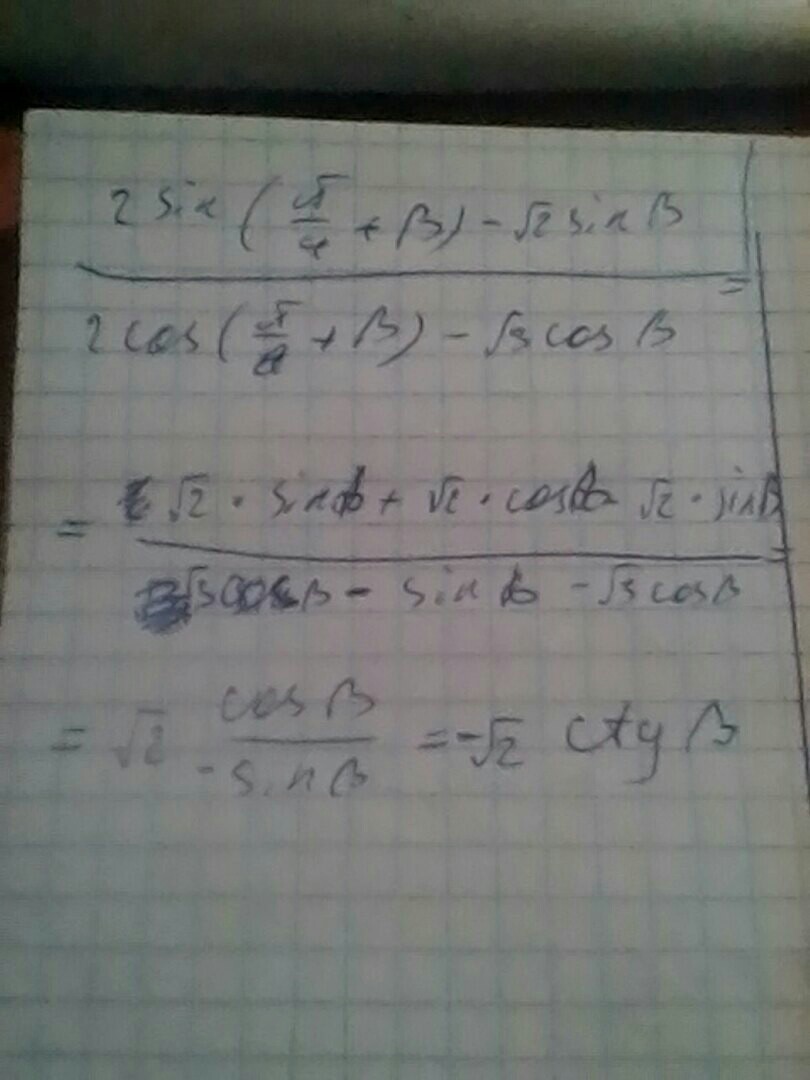 2 sin (π/4 + β) - √2 sin β
=
2 cos (π/ + β) - √3 cos β
= √2 · sin β + √2 · cos β - √2 · sin β
√3 cos β - sin β - √3 cos β
= √2 cos β / - sin β = -√2 ctg β